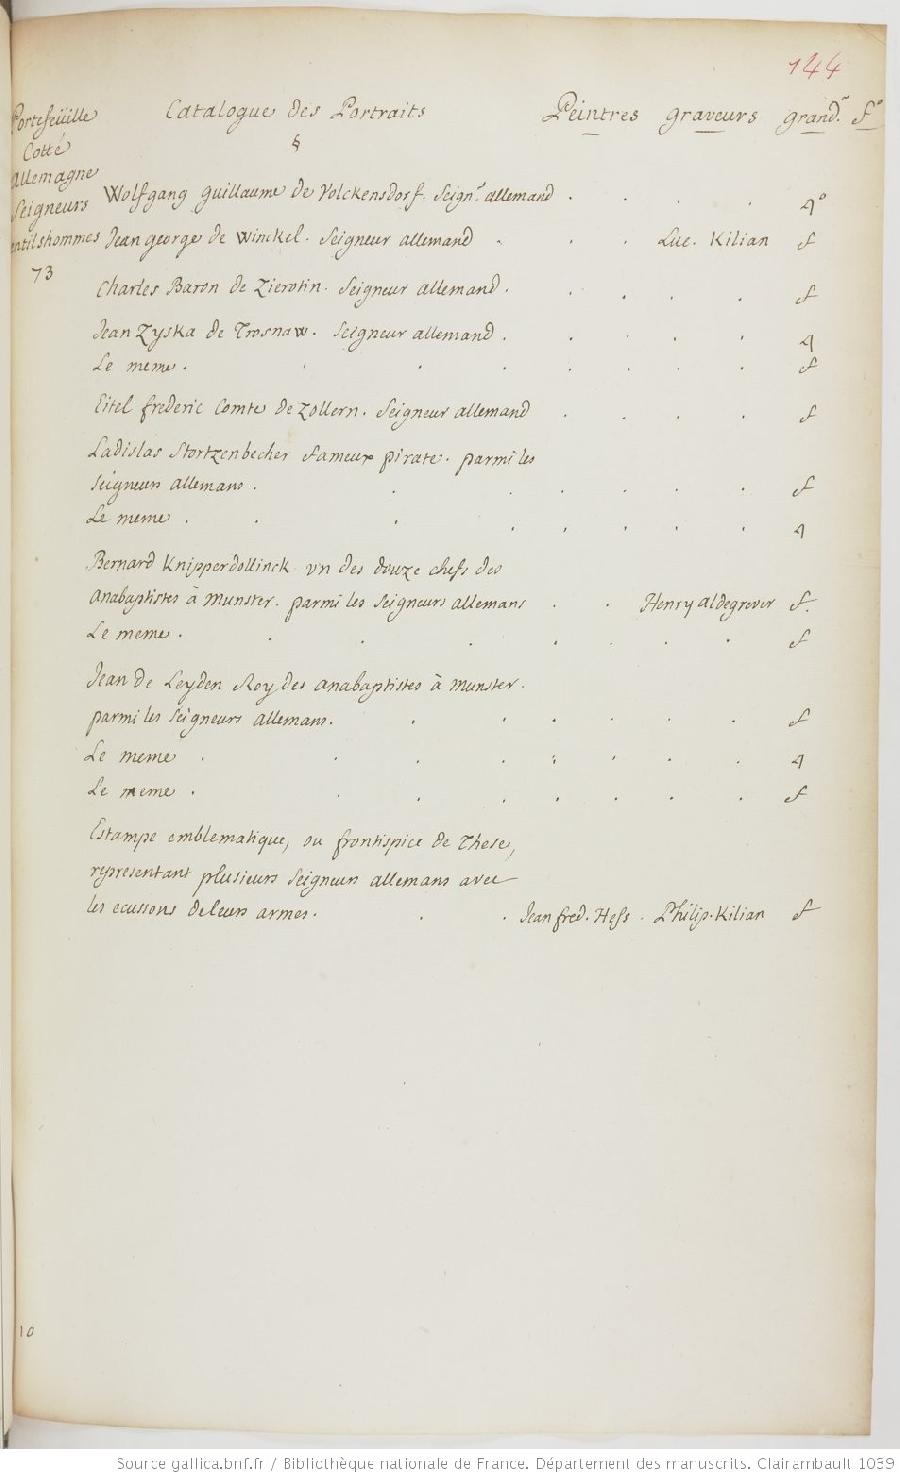 144
Portefeüille
Cotté
Allemagne
Seigneurs
gentilshommes
73
Catalogue des Portraits
§
Peintres graveurs grand.r f.o
Wolfgang Guillaume de Volckensdorf. Seign.r allemand . . . . 4°
Jean george de Winckel. Seigneur allemand . . . Luc. Kilian f
Charles Baron de Zierotin. Seigneur allemand . . . . . f
Jean Zyska de Trosnaw. Seigneur allemand . . . . . 4
Le meme . . . . . . . f
Eitel frederic Comte de Zollern. Seigneur allemand . . . . f
Ladislas Stortzenbecher fameux pirate. parmi les
seigneurs allemans . . . . . . . f
Le meme . . . . . . . . 4
Bernard Knipperdollinck un des douze chefs des
Anabaptistes à Munster. parmi les Seigneurs allemans . . Henry aldegrever f.
Le meme . . . . . . . f
Jean de Leyden Roy des anabaptistes à Munster.
parmi les Seigneurs allemans. . . . . . . f
Le meme . . . . . . . 4
Le meme . . . . . . . f
Estampe emblematique, ou frontispice de These,
representant plusieurs Seigneurs allemans avec
les ecussons de leurs armes. . . Jean fred. Hess . Philip. Kilian f
10
Source gallica.bnf.fr / Bibliothèque nationale de France. Département des manuscrits. Clairambault 1039